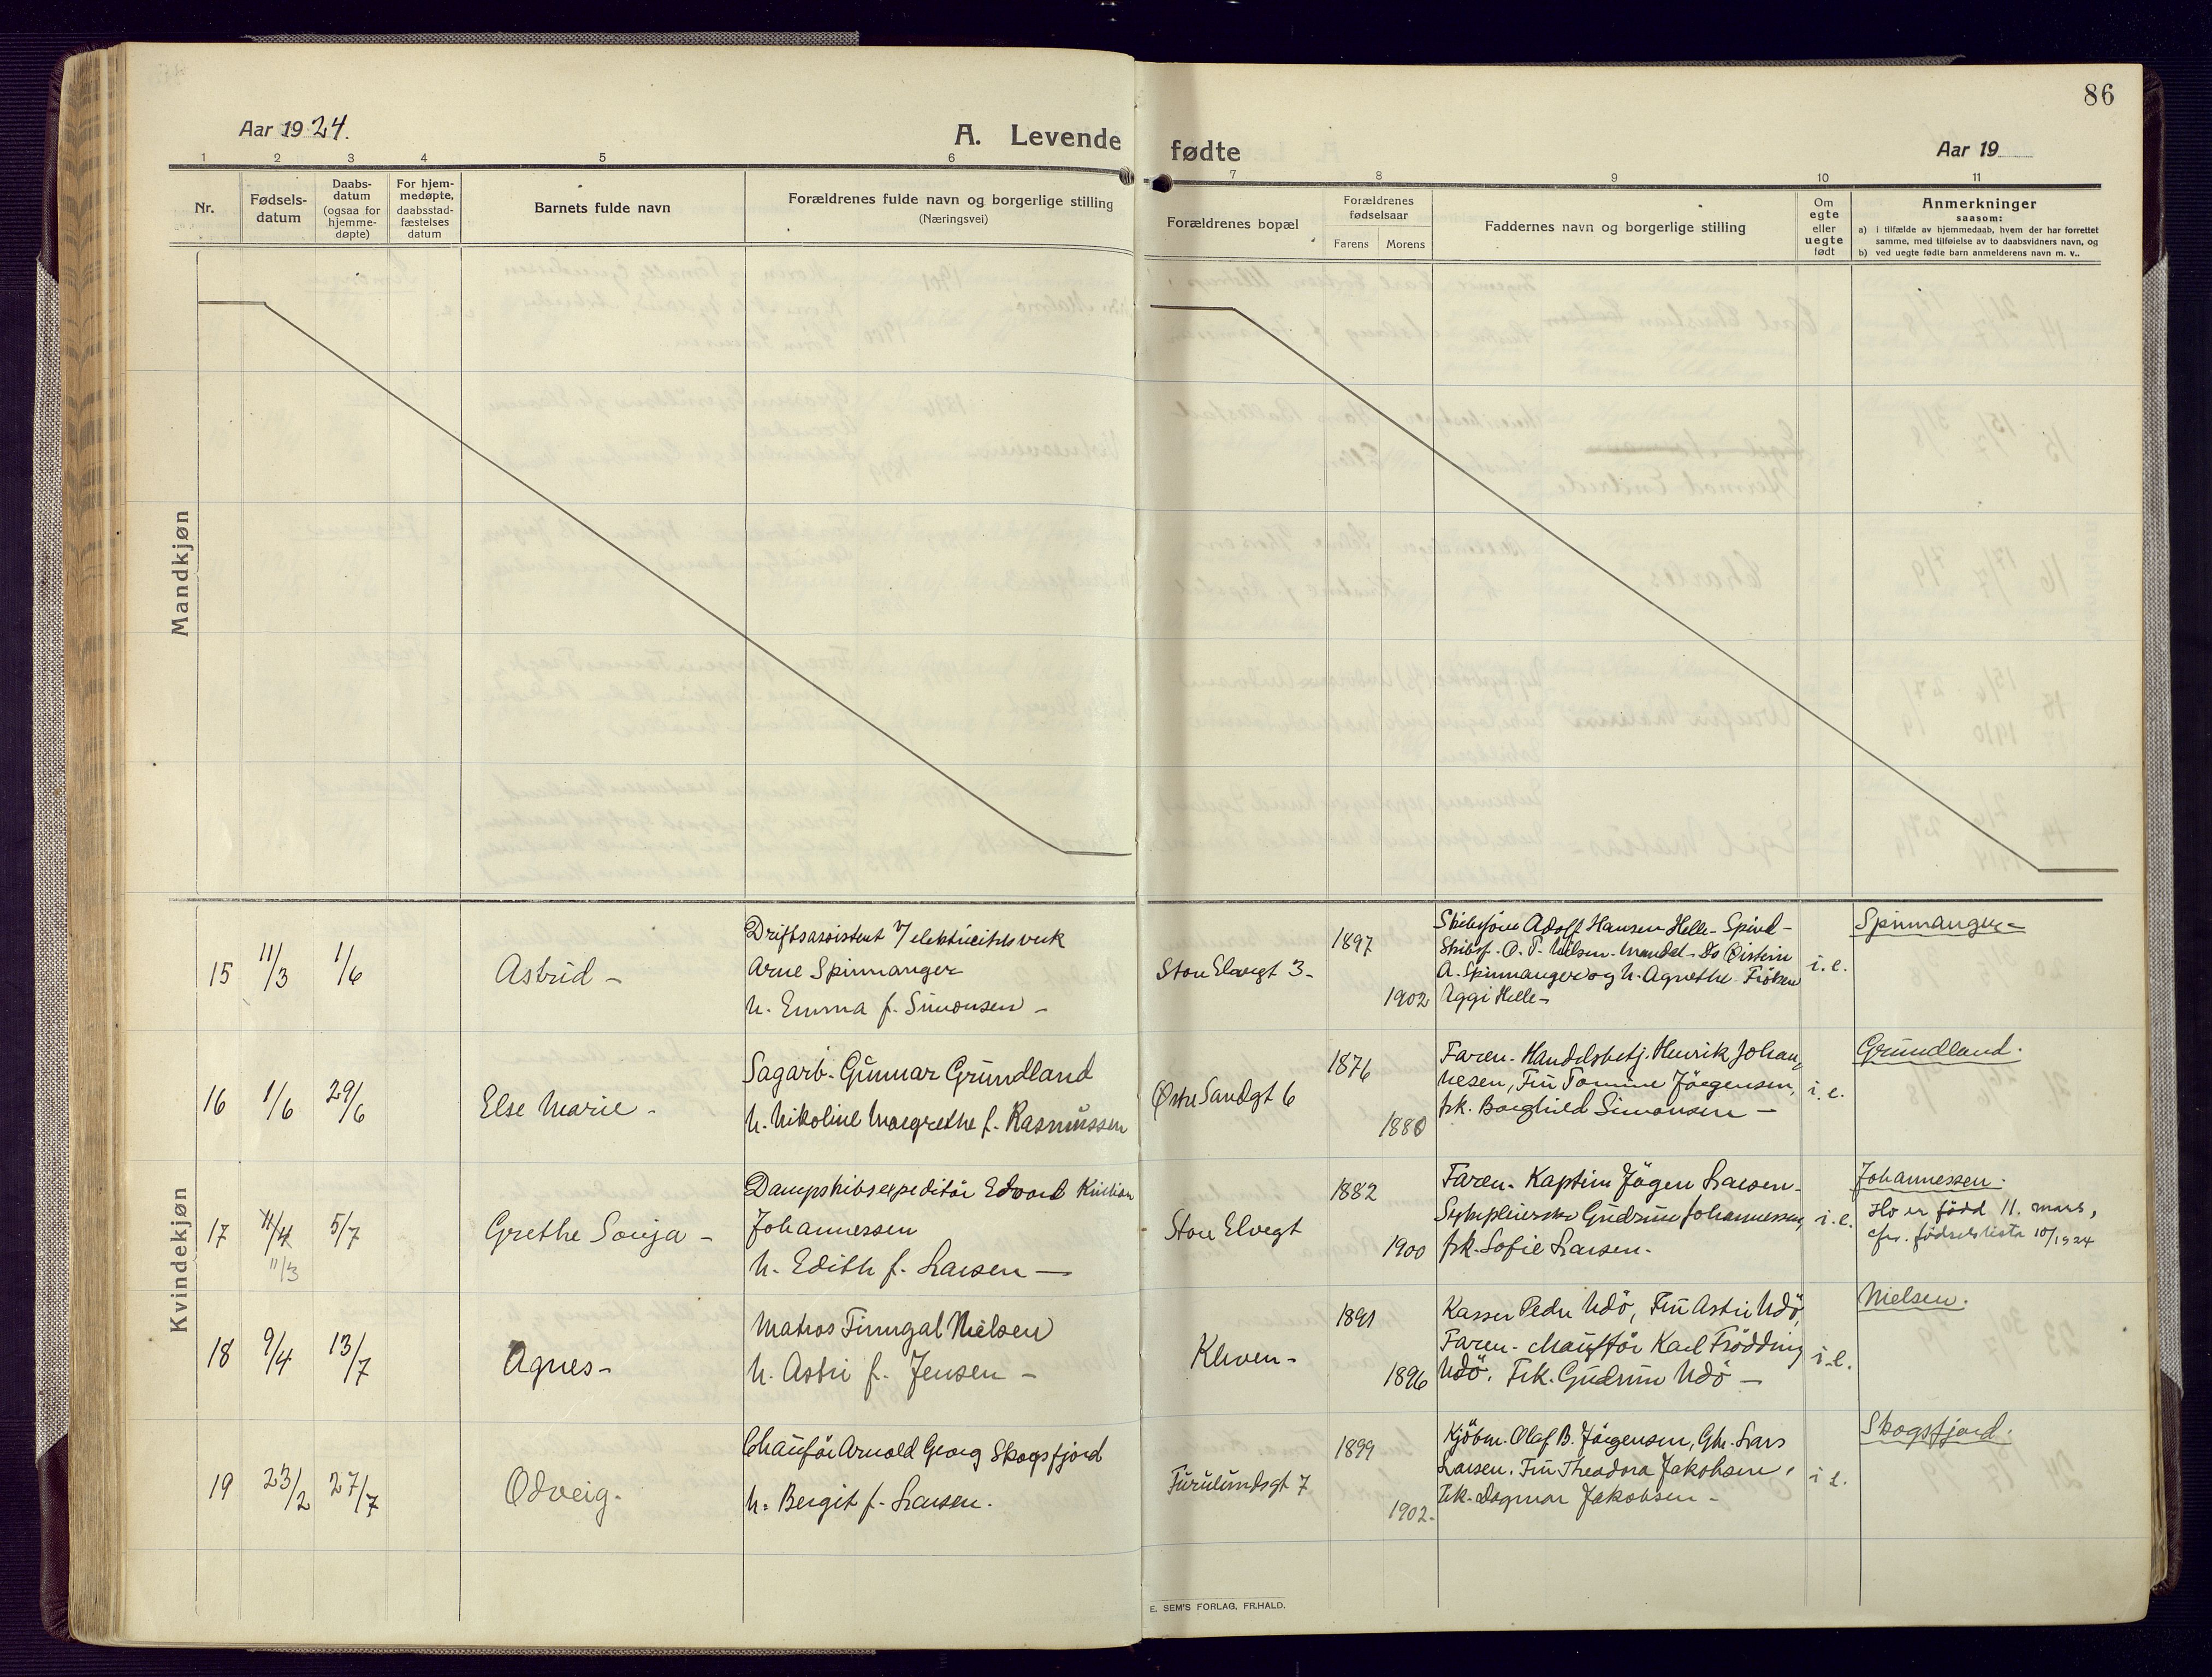 86
Aar 1924.
A. Levende fødte
Aar 19
1 2 3 4 5 6 7 8 9 10 11
Nr.
Fødsels-
datum
Daabs-
datum
(ogsaa for
hjemme-
døpte)
For hjem-
medøpte,
daabsstad-
fæstelses
datum
Barnets fulde navn
Forældrenes fulde navn og borgerlige stilling
(Næringsvei)
Forældrenes bopæl
Forældrenes
fødselsaar
Farens Morens
Faddernes navn og borgerlige stilling
Om
egte
eller
uegte
født
Anmerkninger
saasom:
a) i tilfælde av hjemmedaab, hvem der har forrettet
samme, med tilføielse av to daabsvidners navn, og
b) ved uegte fødte barn anmelderens navn m. v..
Mandkjøn
Kvindekjøn
15 11/3 1/6 Astrid -
Driftsassistent v/ elektricitetsverk
Arne Spinnanger
h. Emma f. Simonsen -
Store Elvegt 3.
1897
1902
Skibsförer Adolf Hansen Helle - Spind -
Skibsf. O. T. Nilsen - Mandal - Do Öistein
A. Spinnanger og h. Agnethe. Fröken
Aggi Helle -
i. e.
Spinnanger -
16 1/6 29/6 Else Marie -
Sagarb. Gunnar Grundland
h. Nikoline Margrethe f. Rasmussen
Østre Sandgt 6
1876
1880
Faren. Handelsbetj. Henrik Johan
nesen, Fru Tomine Jörgensen,
frk. Borghild Simonsen -
i. e.
Grundland.
17 11/4 5/7 Grethe Sonja -
11/3
Dampskibsexpeditör Edvard Kristian
Johannessen
h. Edith f. Larsen -
Store Elvegt
1882
1900
Faren. Kaptein Jörgen Larsen.
Sykepleierske Gudrun Johannessen,
frk. Sofie Larsen.
i. e.
Johannessen.
Ho er född 11. mars,
cfr. födselsliste 10/1924
18 9/4 13/7 Agnes -
Matros Finngal Nielsen
h. Astri f. Jensen -
Kleven -
1891
1896
Kasser Peder Udö, Fru Astri Udö,
Faren. Chaufför Karl Frödding
Udö. Frk. Gudrun Udö -
i. e.
Nielsen.
19 23/2 27/7 Odveig.
Chauför Arnold Georg Skogsfjord
h. Bergit f. Larsen.
Furulundsgt 7
1899
1902.
Kjöbm. Olaf B. Jörgensen, Gbr. Lars
Larsen. Fru Theodora Jakobsen,
Frk. Dagmar Jakobsen -
i e.
Skogsfjord.
E. SEM'S FORLAG, FR.HALD.